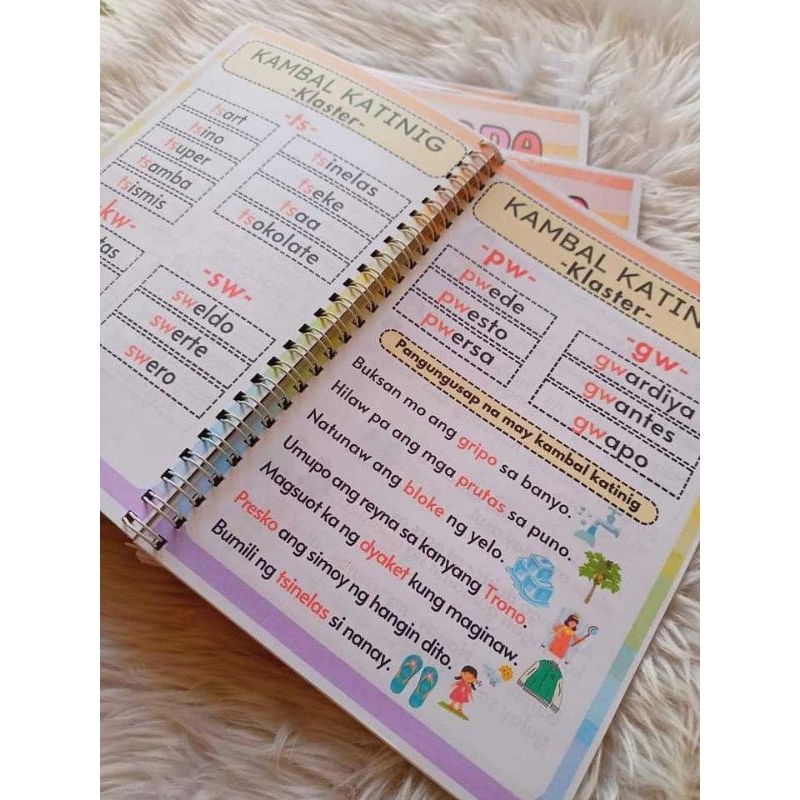 KAMBAL KATINIG
-Klaster-
-ts-
tsart
tsino
tsuper
tsamba
tsismis
tsinelas
tseke
tsaa
tsokolate
kw-
-sw-
sweldo
swerte
swero
KAMBAL KATIN
-Klaster-
-pw-
pwede
pwesto
pwersa
-gw-
gwardiya
gwantes
gwapo
Pangungusap na may kambal katinig
Buksan mo ang gripo sa banyo.
Hilaw pa ang mga prutas sa puno.
Natunaw ang bloke ng yelo.
Umupo ang reyna sa kanyang Trono.
Magsuot ka ng dyaket kung maginaw.
Presko ang simoy ng hangin dito.
Bumili ng tsinelas si nanay.